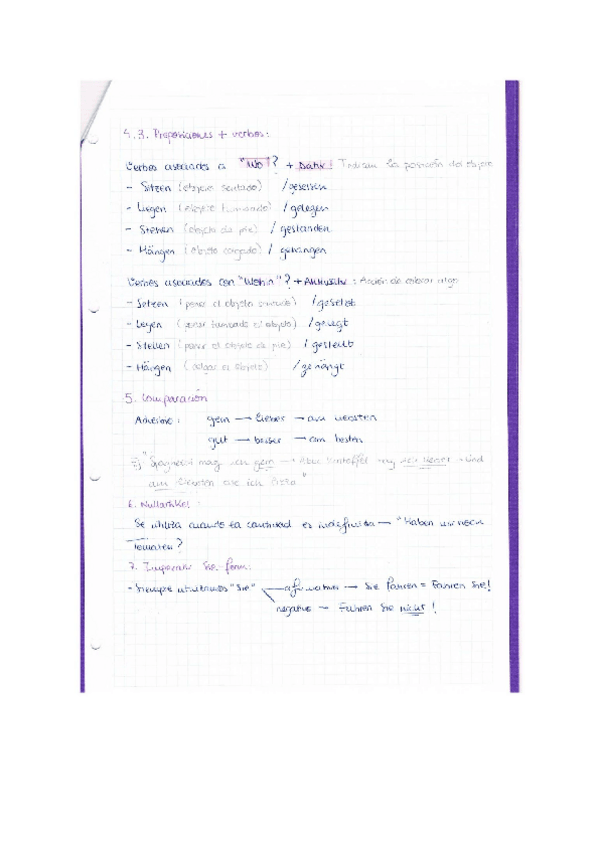 4.3. Preposiciones + verbos:
Verbos asociados a "Wo"? + Dativ: Indican la posición del objeto
- Sitzen (objeto sentado) /gesessen
- Liegen (objeto tumbado) /gelegen
- Stehen (objeto de pie) / gestanden
- Hängen (objeto colgado) / gehangen
Verbos asociados con "Wohin"? + Akkusativ: Acción de colocar algo
- Setzen (poner el objeto sentado) /gesetzt
- Legen (poner tumbado el objeto) /gelegt
- Stellen (poner el objeto de pie) / gestellt
- Hängen (colgar el objeto) /gehängt
5. Comparación
gern → lieber → am liebsten
gut → besser → am besten
"Spaghetti mag ich gern → aber Kartoffel mag ich lieber → und
am liebsten esse ich
6. Nullartikel:
Se utiliza cuando la cantidad es indefinida → "Haben wir noch
Tomaten?
7. Imperativ Sie-form:
- Siempre utilizamos "Sie" afirmativo → Sie fahren = Fahren Sie!
negativo → Fahren Sie nicht!